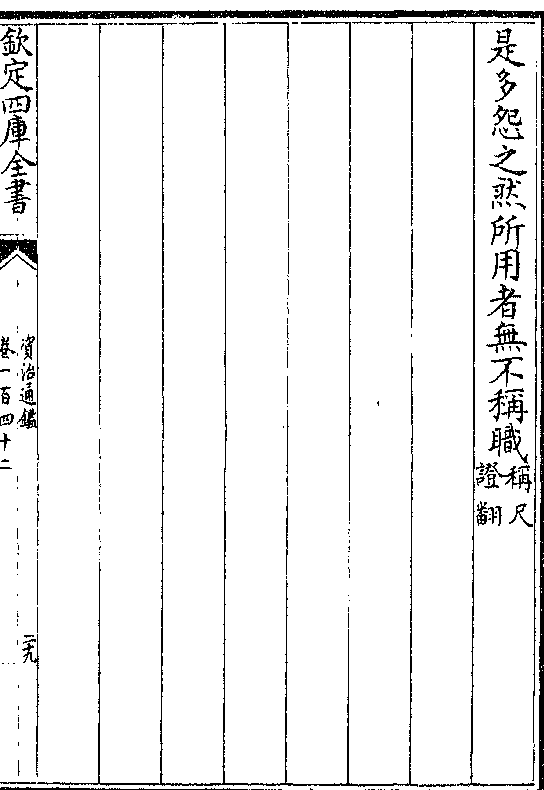 是多怨之然所用者無不稱職稱尺
證翻
欽定四庫全書
資治通鑑
卷一百四十二
二十九